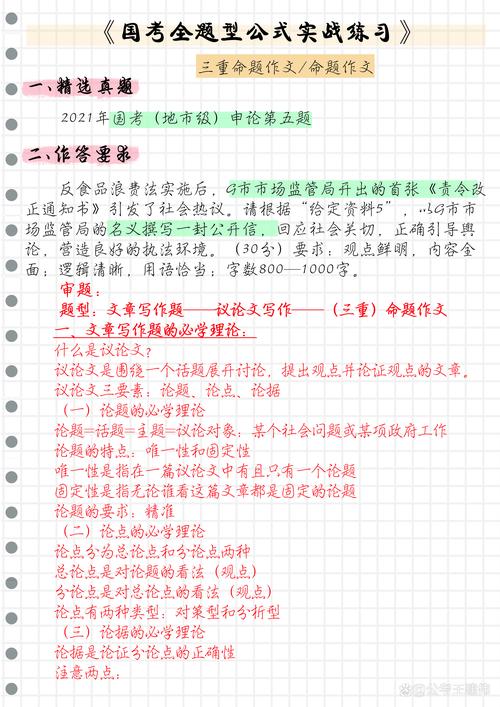 《国考全题型公式实战练习》
三重命题作文/命题作文
一、精选真题
2021年国考（地市级）申论第五题
二、作答要求
反食品浪费法实施后，G市市场监管局开出的首张《责令改
正通知书》引发了社会热议。请根据“给定资料5”，以G市市
场监管局的名义撰写一封公开信，回应社会关切，正确引导舆
论，营造良好的执法环境。（30分）要求：观点鲜明，内容全
面；逻辑清晰，用语恰当；字数800—1000字。
审题：
题型：文章写作题——议论文写作——（三重）命题作文
一、文章写作题的必学理论：
什么是议论文？
议论文是围绕一个话题展开讨论，提出观点并论证观点的文章。
议论文三要素：论题、论点、论据
（一）论题的必学理论
论题=话题=主题=议论对象：某个社会问题或某项政府工作
论题的特点：唯一性和固定性
唯一性是指在一篇议论文中有且只有一个论题
固定性是指无论谁看这篇文章都是固定的论题
论题的要求：精准
（二）论点的必学理论
论点分为总论点和分论点两种
总论点是对论题的看法（观点）
分论点是对总论点的看法（观点）
论点有两种类型：对策型和分析型
（三）论据的必学理论
论据是论证分论点的正确性
注意两点：
@公考王建伟